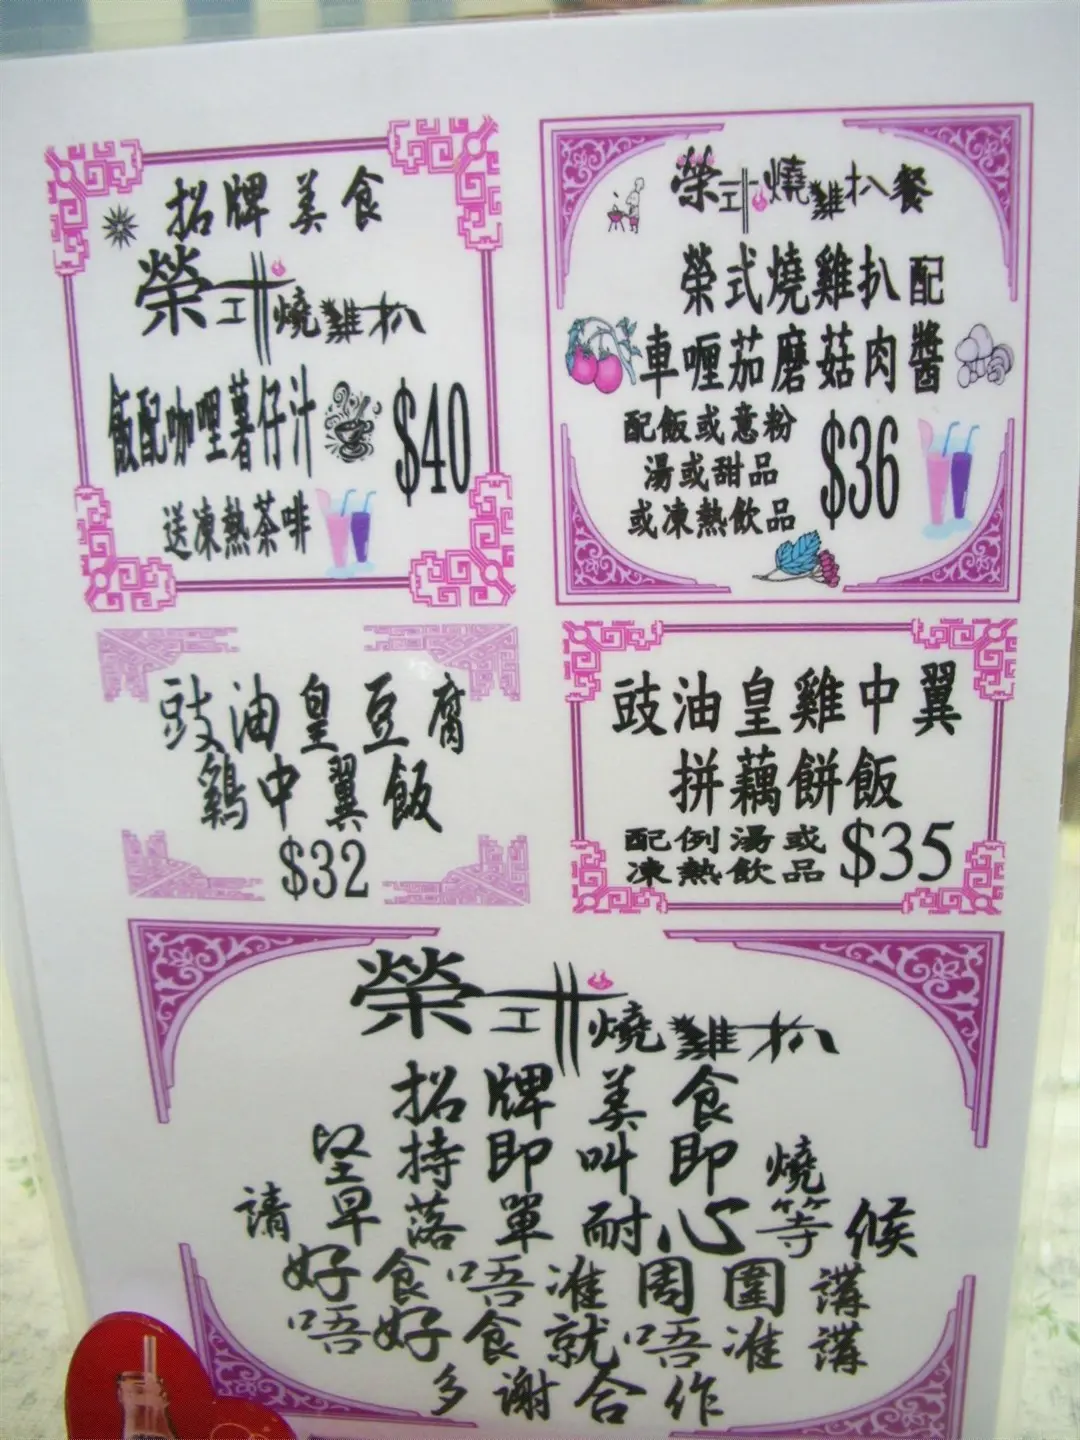 招牌美食
榮工井燒雞扒
飯配咖哩薯仔汁
$40
送凍熱茶啡
榮工井燒雞扒餐
榮式燒雞扒配
車喱茄磨菇肉醬
配飯或意粉
湯或甜品
或凍熱飲品
$36
豉油皇豆腐
鷄中翼飯
$32
豉油皇雞中翼
拼藕餅飯
配例湯或
凍熱飲品
$35
榮工井燒雞扒
招牌美食
堅持即叫即燒
請早落單耐心等候
好食唔准周圍講
唔好食就唔准講
多謝合作